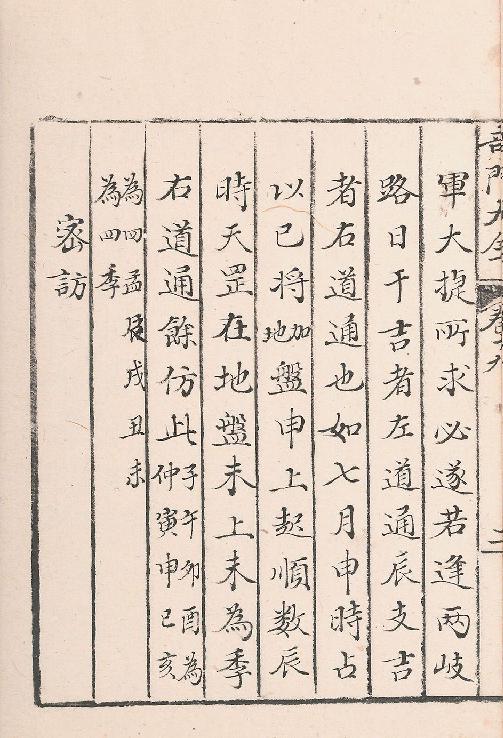 軍大捷所求必遂若逢两岐
路日干吉者左道通辰支吉
者右道通也如七月申時占
以巳将加地盤申上起順數辰
時天罡在地盤未上未為季
右道通餘仿此子午卯酉為仲寅申巳亥
為四孟辰戌丑未為四季
密訪